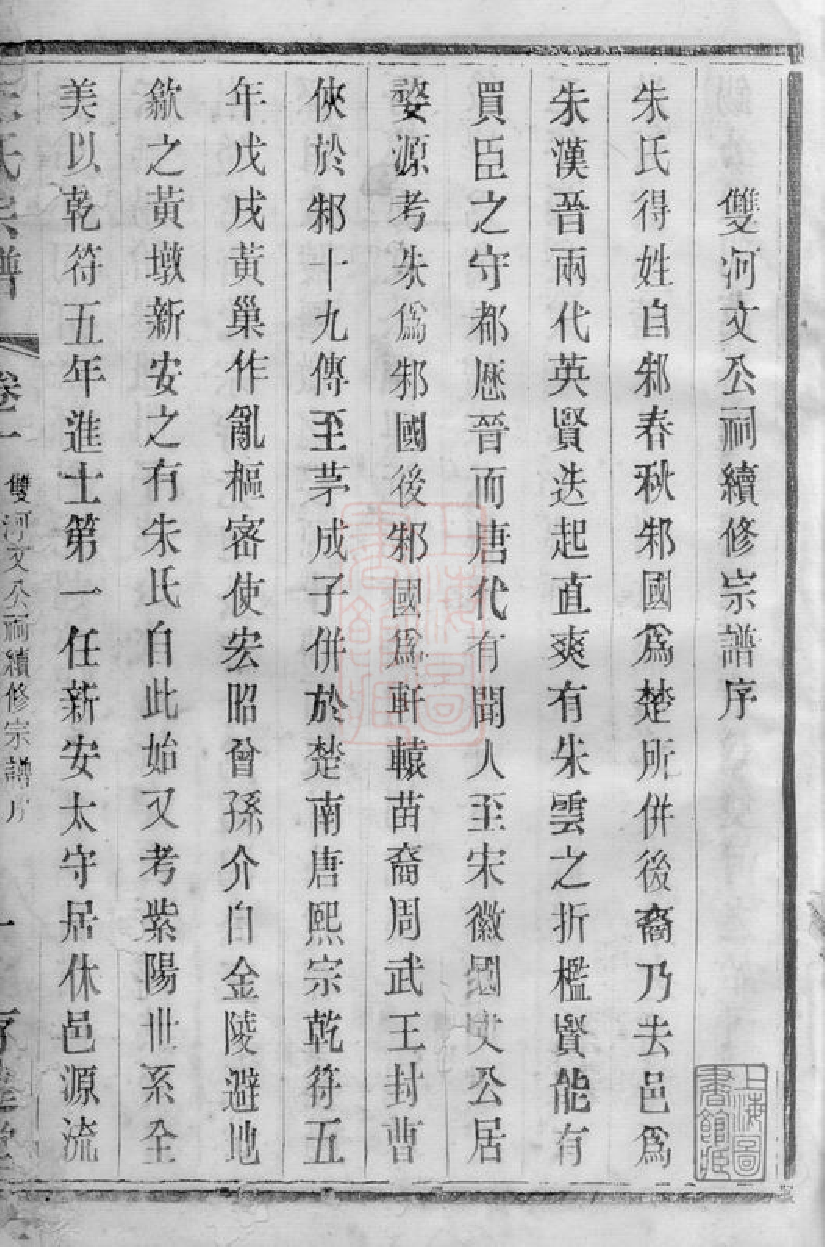 雙河文公祠續修宗譜序
朱氏得姓自邾春秋邾國爲楚所併後裔乃去邑爲
朱漢晉兩代英賢迭起直爽有朱雲之折檻賢能有
買臣之守都歷晉而唐代有聞人至宋徽國文公居
婺源考朱爲邾國後邾國爲軒轅苗裔周武王封曹
俠於邾十九傳至茅成子併於楚南唐熙宗乾符五
年戊戌黃巢作亂樞密使宏昭曾孫介自金陵避地
歙之黃墩新安之有朱氏自此始又考紫陽世系全
美以乾符五年進士第一任新安太守居休邑源流
氏宗譜
卷一
雙河文公祠續修宗譜序
一
上海圖書館藏
上海圖書館藏